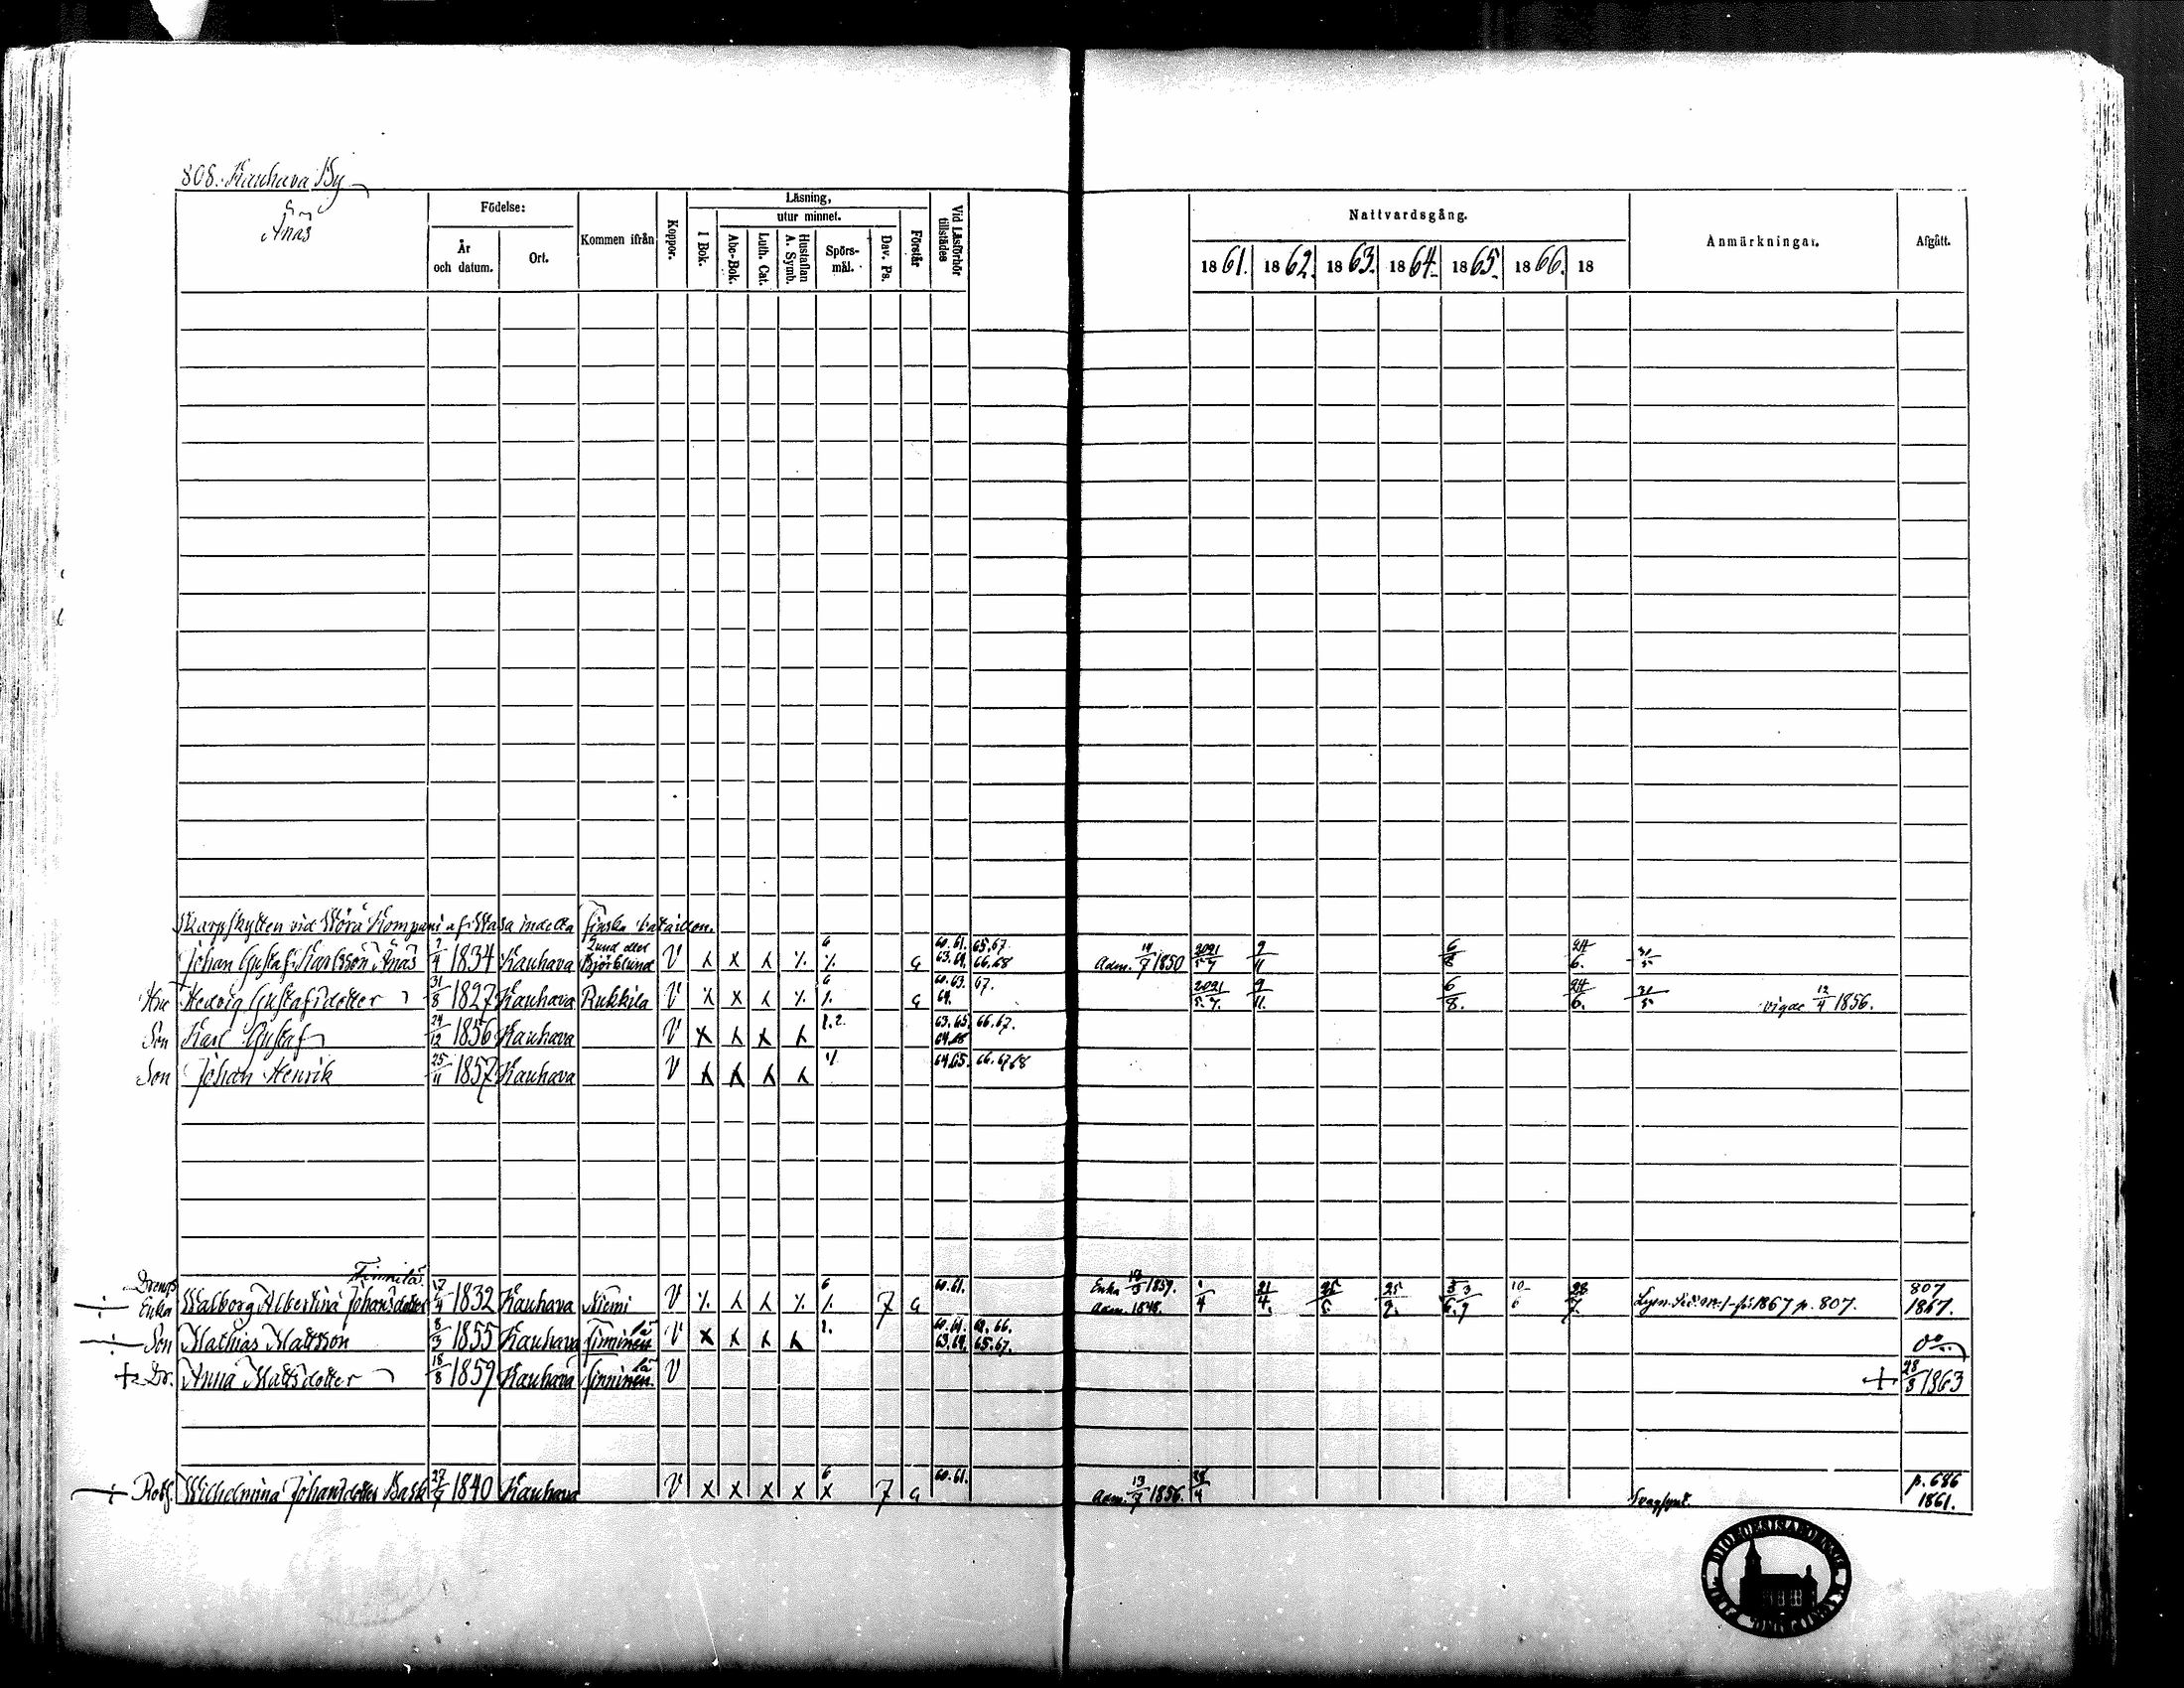 808. Kauhava By
Ånäs
Födelse:
År och datum.
Ort.
Kommen ifrån
Koppor.
Läsning,
utur minnet.
I Bok.
Abc-Bok.
Luth. Cat.
Hustaflan A. Symb.
Spörs-mål.
Dav. Ps.
Förstår
Vid Läsförhör tillstädes
Nattvardsgång.
1861. 1862. 1863. 1864. 1865. 1866. 18
Anmärkningar.
Afgått.
Skarpskytten vid Wörå Kompani af Wasa indelta finska bataillon.
Johan Gustaf Karlsson Ånäs 2/4 1834 Kauhava Björklund V 6 60.61. 63.64. 65.67. 66.68 Adm. 14/7 1850 2021/5.7 9/11 6/8 24/6. 31/5
Hu Hedvig Gustafsdotter 31/8 1827 Kauhava Rukkila V 6 60.63. 64. 67. 2021/5.7. 9/11. 6/8. 24/6. 31/5 vigde 12/4 1856.
Son Karl Gustaf 24/12 1856 Kauhava V 1.2. 63.65. 64.68 66.67.
Son Johan Henrik 25/11 1857 Kauhava V 64.65. 66.67.68
Drengs Enka Walborg Albertina Johansdotter Finnilä 17/4 1832 Kauhava Niemi V 6 7 60.61. Enka 1859. Adm. 1848. 1/4 21/4. 25/6. 25/9. 10/6 28/7. p. 807. 807 1867.
Son Mathias Mattsson 8/3 1855 Kauhava Finninen lä V 1. 60.61. 63.64. 62.66. 65.67.
Dr. Anna Mattsdotter 18/8 1859 Kauhava Finninen lä V 28/8 1863
Roth. Wilhelmina Johansdotter Bask 27/7 1840 Kauhava V 6 7 60.61. Adm. 13/7 1856. 28/4 Svagsynt. p. 686 1861.